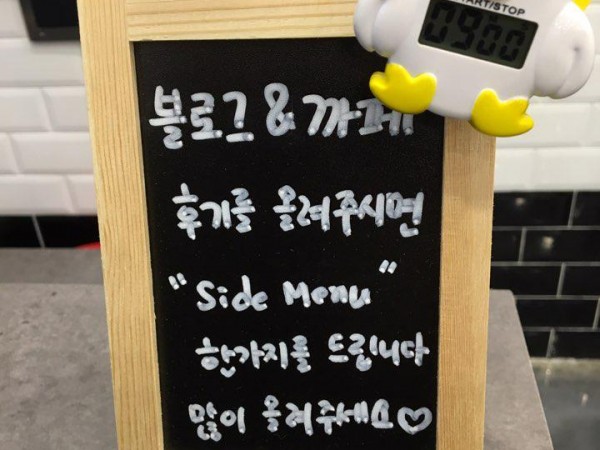 START/STOP
09 00
블로그 & 까페
후기를 올려주시면
"Side Menu"
한가지를 드립니다
많이 올려주세요♡